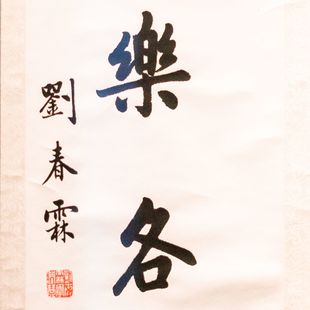 樂各
劉春霖